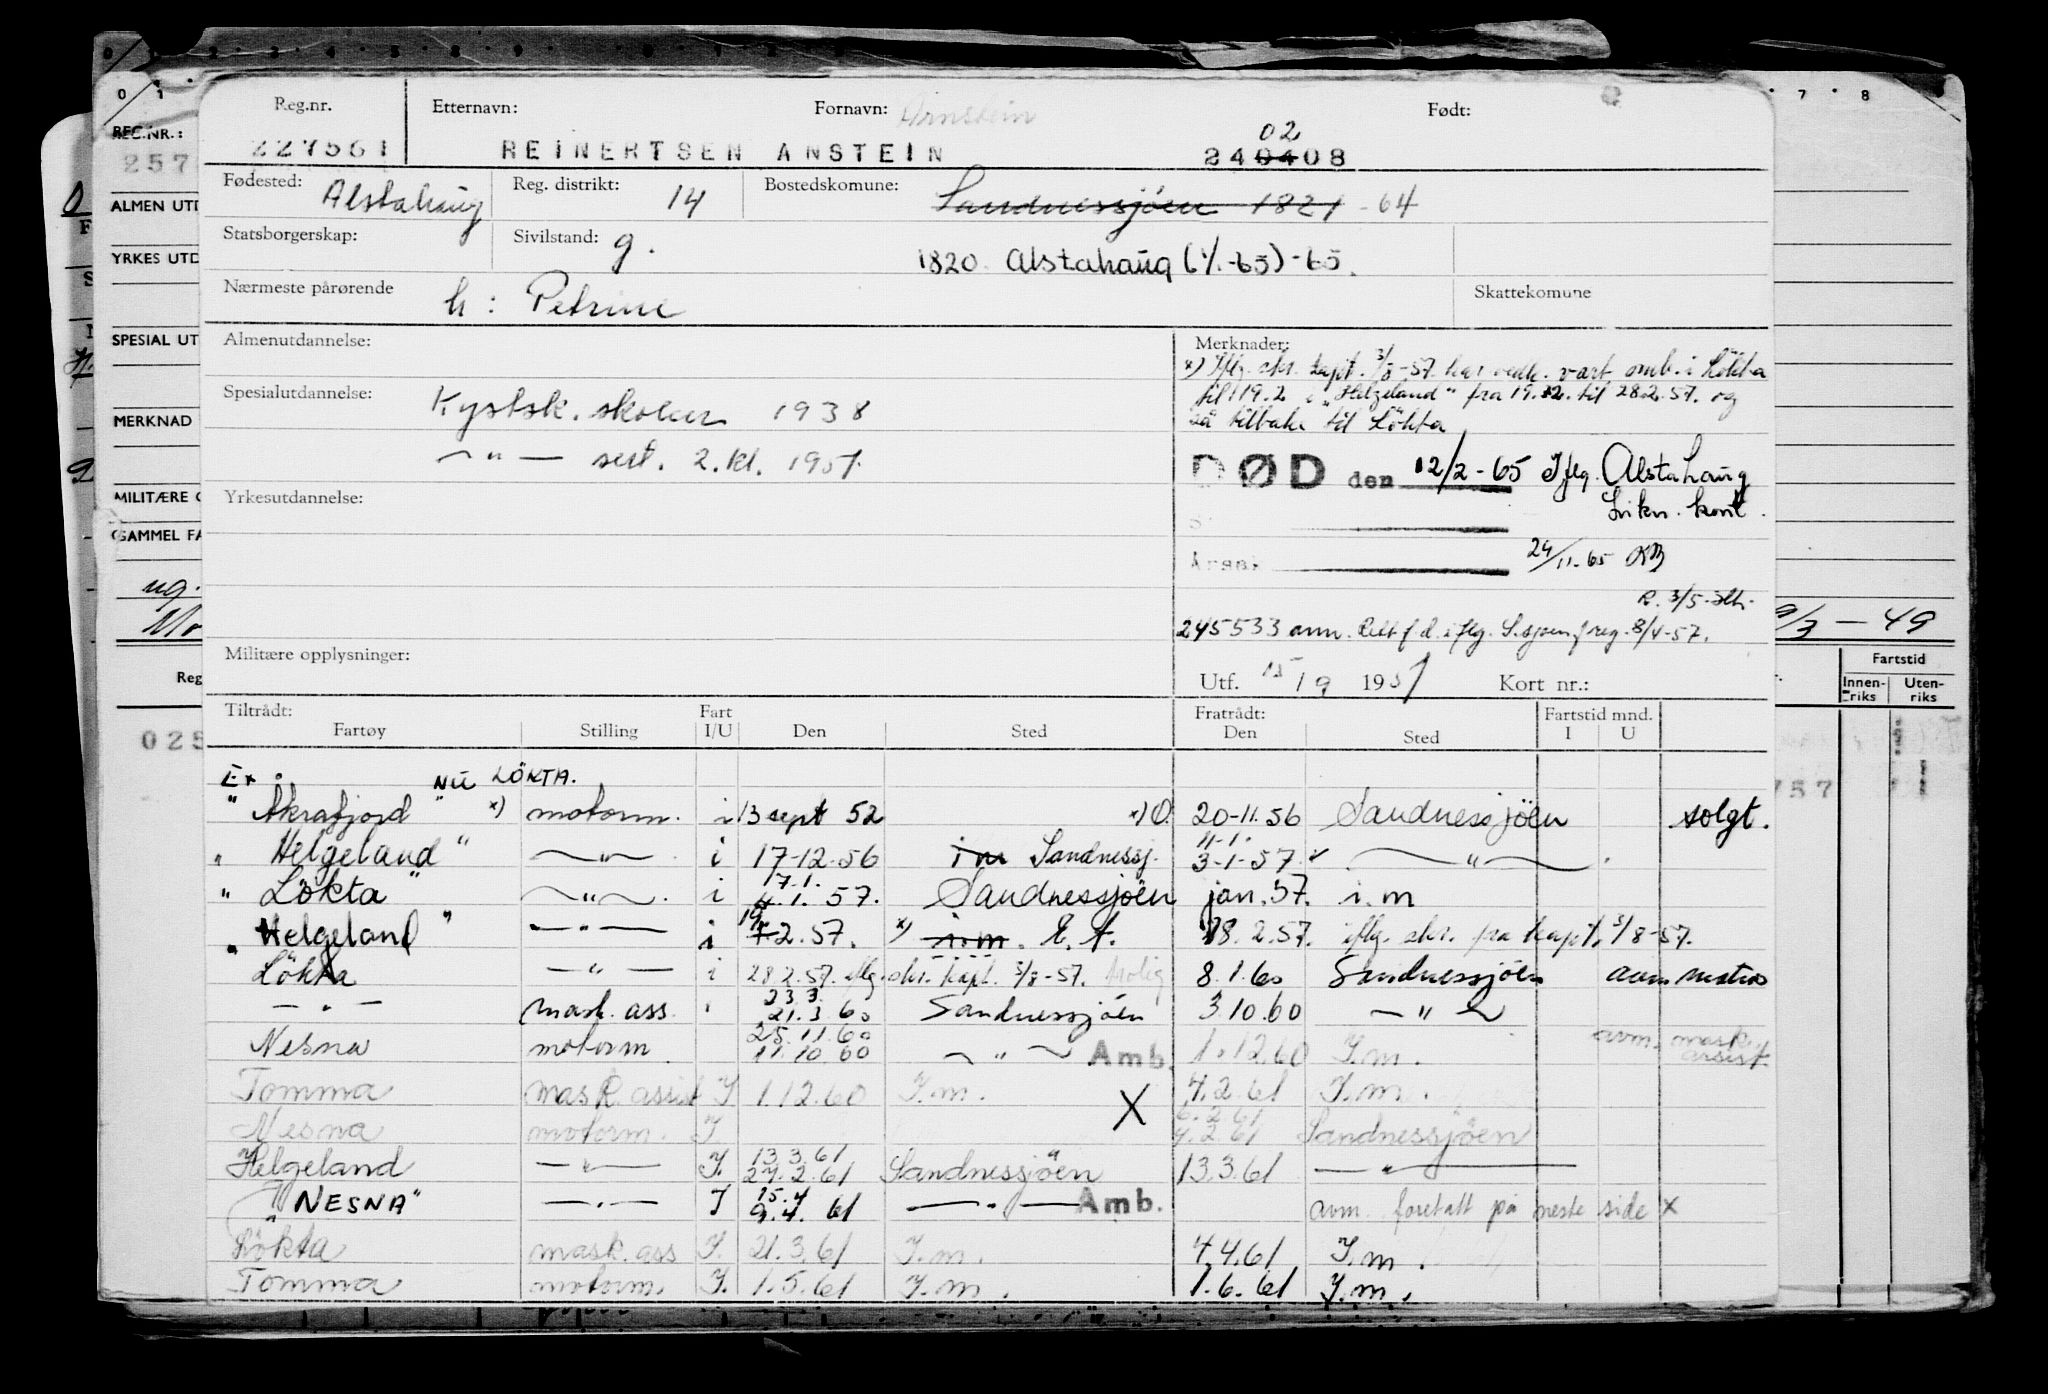 Reg.nr. Etternavn: Fornavn: Arnstein Født:
02
227561 REINERTSEN ANSTEIN 240408
Fødested: Alstahaug Reg. distrikt: 14 Bostedskomune: Sandnessjöen 1821 - 64
Statsborgerskap: Sivilstand: g. 1820 Alstahaug (1/1.-65)-65.
Nærmeste pårørende h: Petrine Skattekomune
Almenutdannelse: Merknader:
x) Iflg. skr. kapt. 3/8-57. har vedk. vært omb. i Lökta
til 19.2 i "Helgeland" fra 19.2. til 28.2.57. og
så tilbake til Lökta
Spesialutdannelse: Kystsk. skolen 1938
— " — sert. 2. kl. 1951.
DØD den 12/2-65 Iflg. Alstahaug
Likn. kont.
Yrkesutdannelse:
Årsak 24/11-65
R. 3/5-
245533 ann. Rett f.d. iflg. S.sjøen f reg. 8/4-57.
Militære opplysninger:
Utf. 15/9 1957 Kort nr.:
Tiltrådt: Fart Fratrådt: Fartstid mnd.
Fartøy Stilling I/U Den Sted Den Sted I U
Ex NU LÖKTA.
" Åkrafjord " x) motorm. i 13 sept 52 x) O. 20-11.56 Sandnessjöen solgt.
11-1.
" Helgeland " — " — i 17-12.56 i m Sandnessj. 3-1-57. — " —
17.1.
" Lökta " — " — i 4.1.57. Sandnessjöen jan.57. i.m
19
" Helgeland " — " — i 7.2.57. x) i.m. E.A. 28.2.57. iflg. skr. fra kapt. 3/8-57.
Lökta — " — i 28.2.57. iflg. skr. kapt. 3/8-57. trolig 8.1.60 Sandnessjöen avm. matros
23.3.
— " — mask. ass. 21.3.60 Sandnessjöen 3.10.60 — " —
25.11.60
Nesna motorm. 11.10.60 — " — Amb. 1.12.60 I.m. avm. mask. assist.
Tomma mask. assist I 1.12.60 I.m. X 4.2.61 I.m.
6.2.61
Nesna motorm. I. 4.2.61 Sandnessjöen
13.3.61
Helgeland — " — I. 27.2.61 Sandnessjöen 13.3.61 — " —
15.4
"NESNA" — " — I 9.4.61 — " — Amb. avm. foretatt på neste side X
Lökta mask. ass I. 21.3.61 I.m. 4.4.61 I.m.
Tomma motorm. I. 1.5.61 I.m. 1.6.61 I.m.
REG.NR.:
257
ALMEN UTD
YRKES UTD
SPESIAL UT
MERKNAD
MILITÆRE
GAMMEL FA
ug.
Reg
025
9/3 - 49
Fartstid
Innen-riks Uten-riks
757